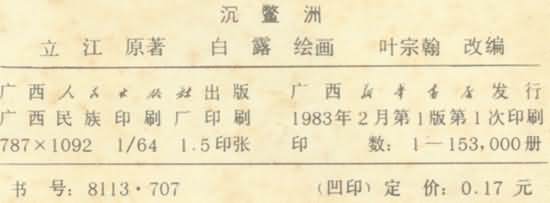 沉鳖洲
立江 原著 白露 绘画 叶宗翰 改编
广西人民出版社出版 广西新华书店发行
广西民族印刷厂印刷 1983年2月第1版第1次印刷
787×1092 1/64 1.5印张 印 数：1—153,000册
书号：8113·707 (凹印)定 价：0.17元